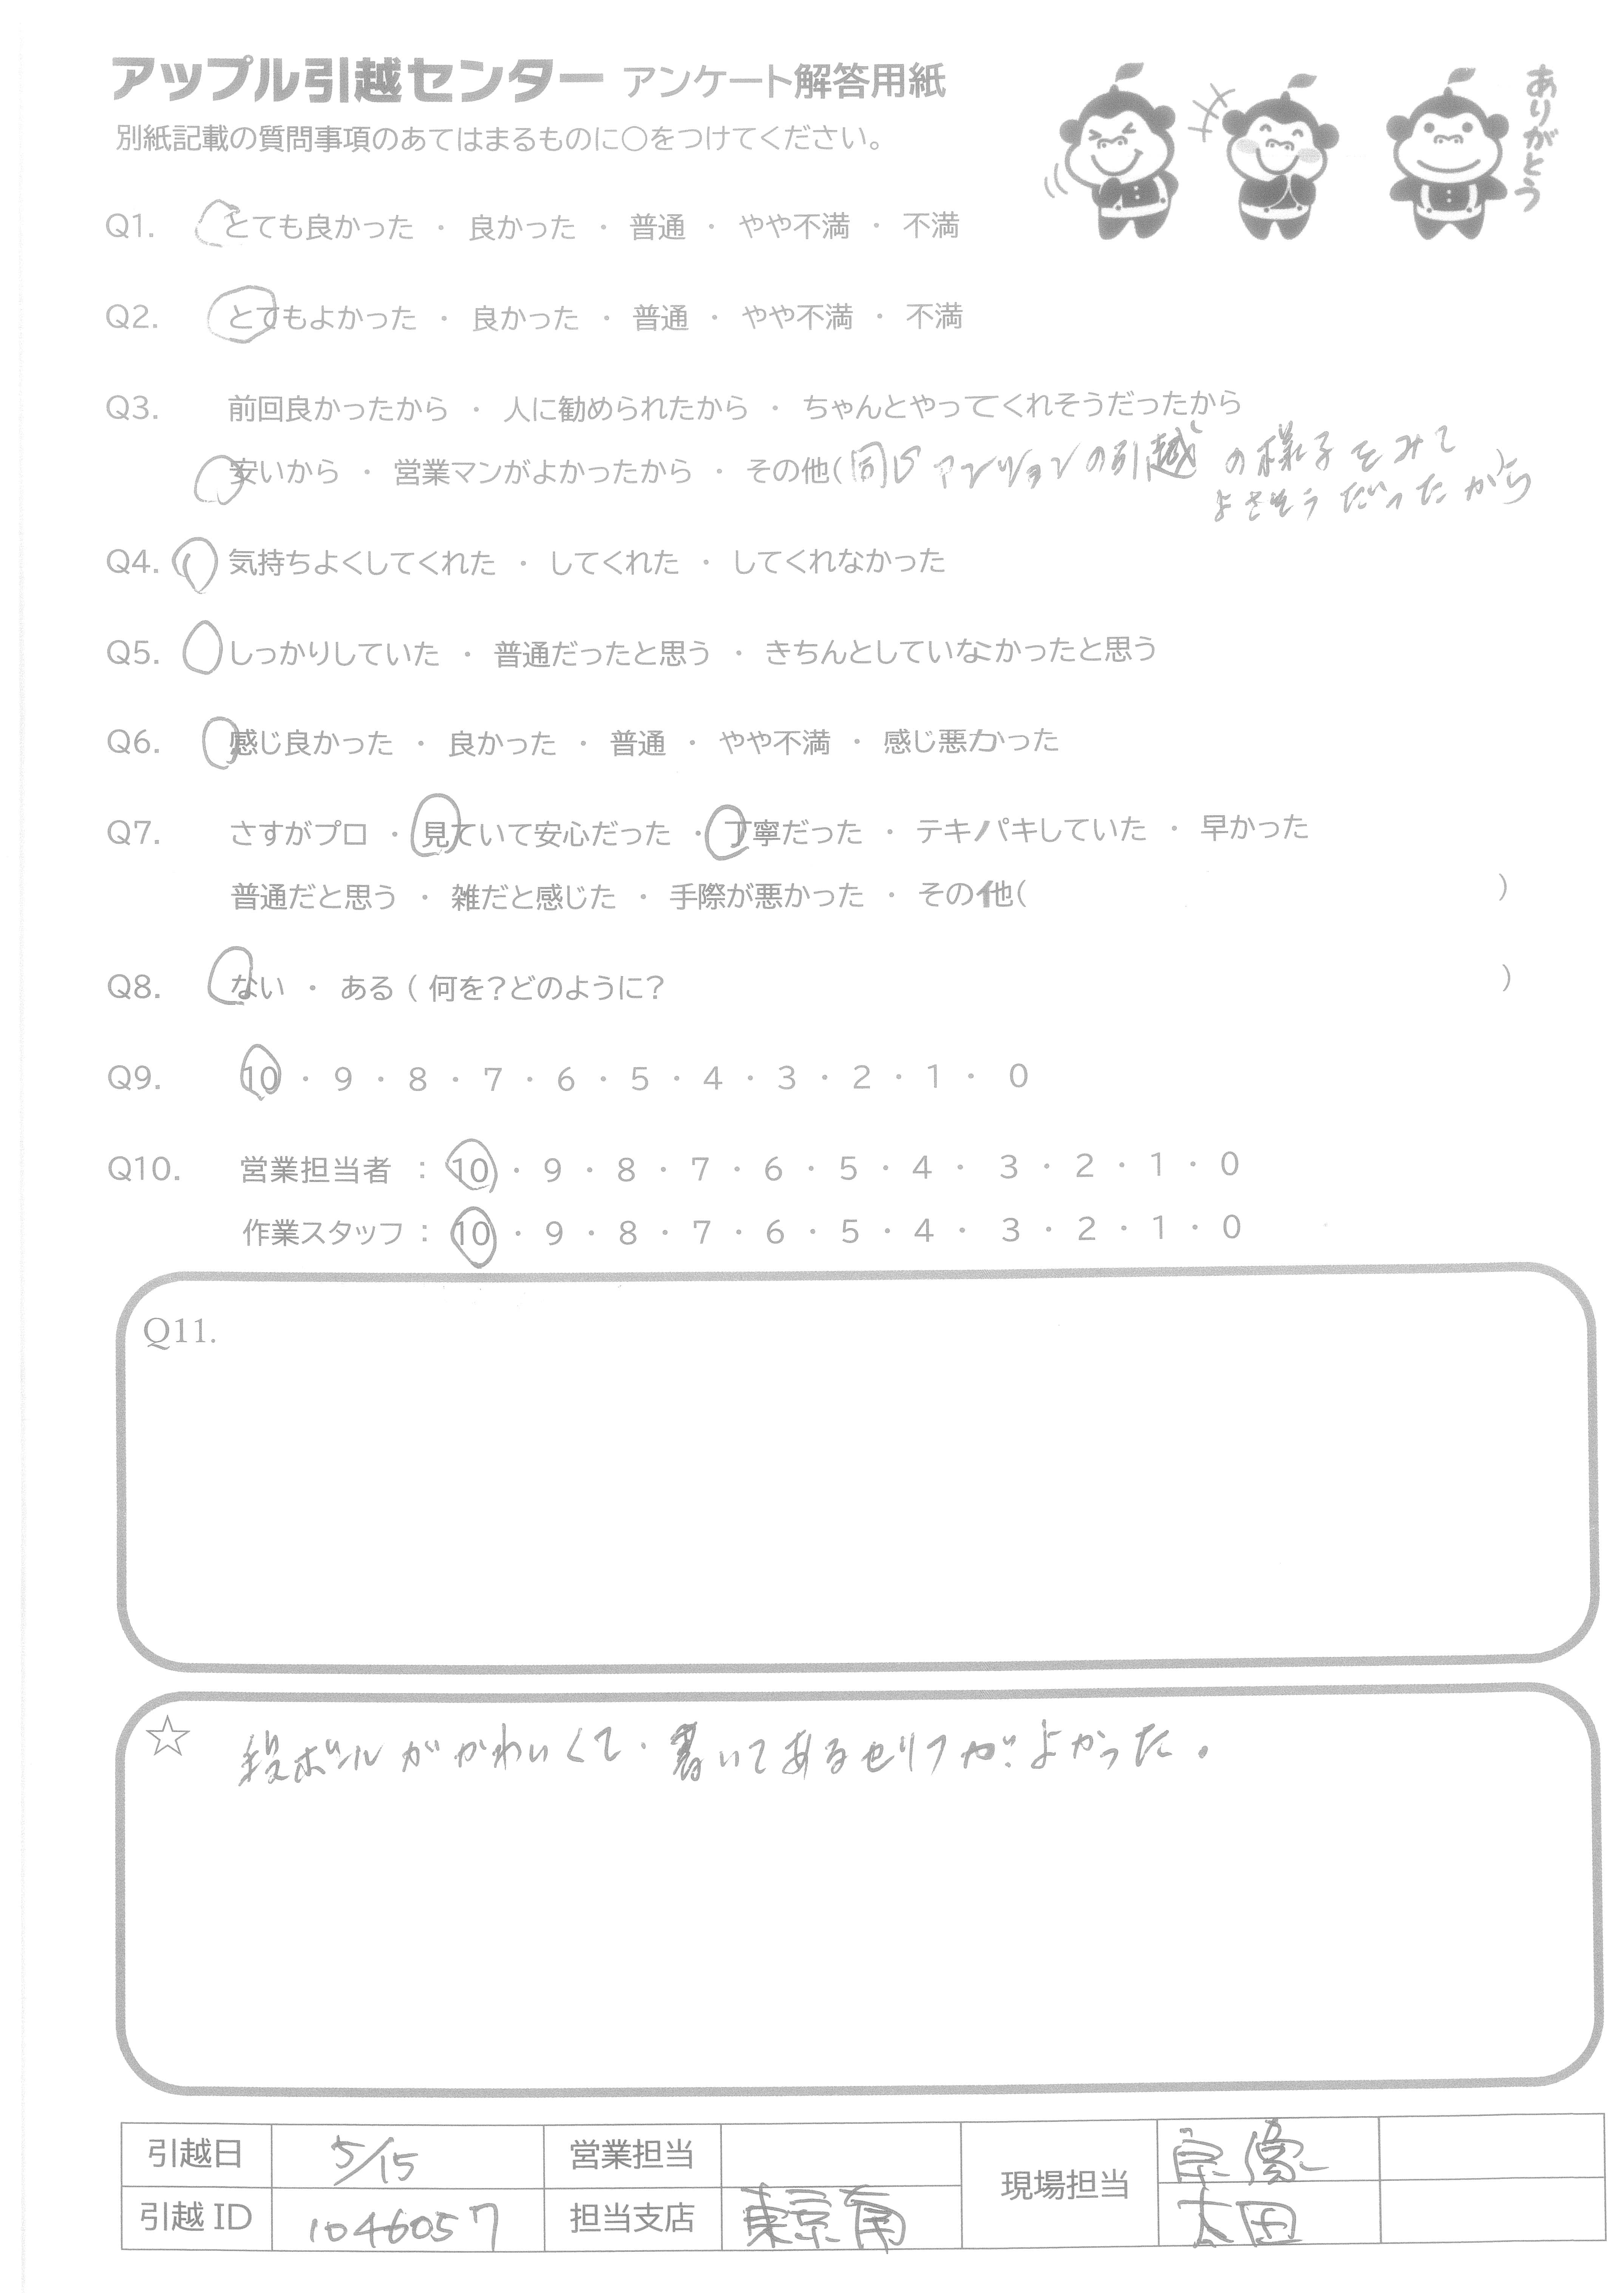 アップル引越センター アンケート解答用紙
ありがとう
別紙記載の質問事項のあてはまるものに○をつけてください。
Q1. とても良かった ・ 良かった ・ 普通 ・ やや不満 ・ 不満
Q2. とてもよかった ・ 良かった ・ 普通 ・ やや不満 ・ 不満
Q3. 前回良かったから ・ 人に勧められたから ・ ちゃんとやってくれそうだったから
安いから ・ 営業マンがよかったから ・ その他(同じマンションの引越の様子をみて
よさそうだったから)
Q4. 気持ちよくしてくれた ・ してくれた ・ してくれなかった
Q5. しっかりしていた ・ 普通だったと思う ・ きちんとしていなかったと思う
Q6. 感じ良かった ・ 良かった ・ 普通 ・ やや不満 ・ 感じ悪かった
Q7. さすがプロ ・ 見ていて安心だった ・ 丁寧だった ・ テキパキしていた ・ 早かった
普通だと思う ・ 雑だと感じた ・ 手際が悪かった ・ その他( )
Q8. ない ・ ある ( 何を?どのように? )
Q9. 10 ・ 9 ・ 8 ・ 7 ・ 6 ・ 5 ・ 4 ・ 3 ・ 2 ・ 1 ・ 0
Q10. 営業担当者 : 10 ・ 9 ・ 8 ・ 7 ・ 6 ・ 5 ・ 4 ・ 3 ・ 2 ・ 1 ・ 0
作業スタッフ : 10 ・ 9 ・ 8 ・ 7 ・ 6 ・ 5 ・ 4 ・ 3 ・ 2 ・ 1 ・ 0
Q11.
☆ 段ボールがかわいくて、書いてあるセリフがよかった。
引越日 5/15 営業担当 現場担当
引越ID 1046057 担当支店 東京南 太田